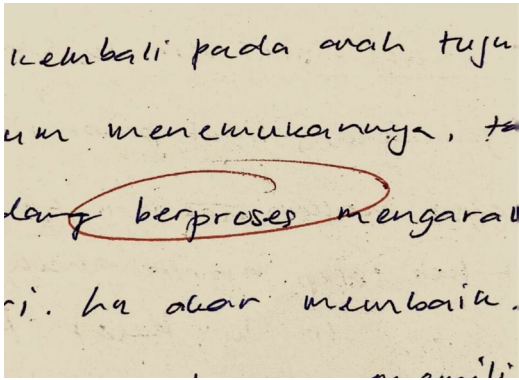 kembali pada arah tuju
um menemukannya, ta
dang berproses mengara
ri. hu akar membaik.